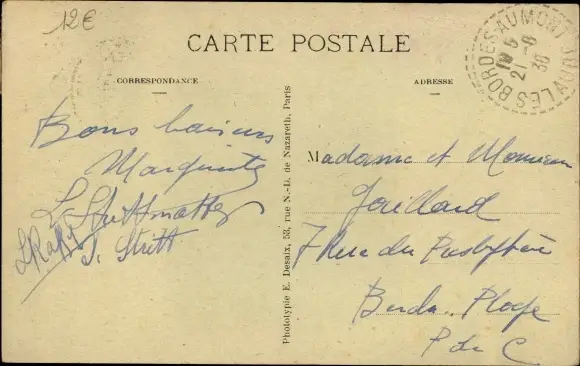 12€
CARTE POSTALE
CORRESPONDANCE
ADRESSE
Bons baisers
Marguerite
L Strittmatter
J. Stritt
Madame et Monsieur
Gaillard
7 Rue du Presbytère
Berck-Plage
P de C
Phototypie E. Desaix, 53, rue N.-D. de Nazareth, Paris
LES BORDES AUMONT
21 -6
36
AUBE